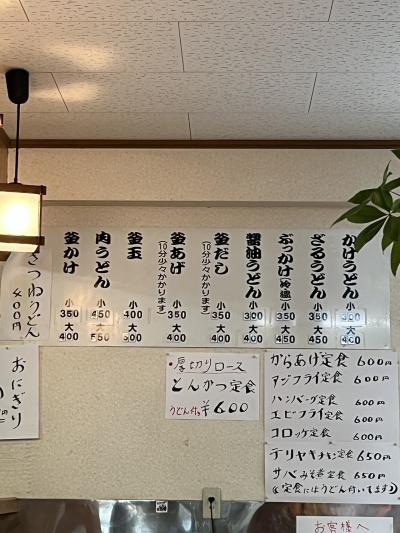 かけうどん 小 300 大 400
ざるうどん 小 350 大 400
ぶっかけ(冷温) 小 350 大 400
醤油うどん 小 300 大 400
釜だし (10分少々かかります) 小 350 大 400
釜あげ (10分少々かかります) 小 350 大 400
釜玉 小 400 大 500
肉うどん 小 450 大 550
釜かけ 小 350 大 400
きつねうどん 400円
おにぎり
・厚切りロース
とんかつ定食
うどん付 ¥600
からあげ定食 600円
アジフライ定食 600円
ハンバーグ定食 600円
エビフライ定食 600円
コロッケ定食 600円
テリヤキチキン定食 650円
サバみそ煮定食 650円
(定食にはうどん付いてます)
お客様へ